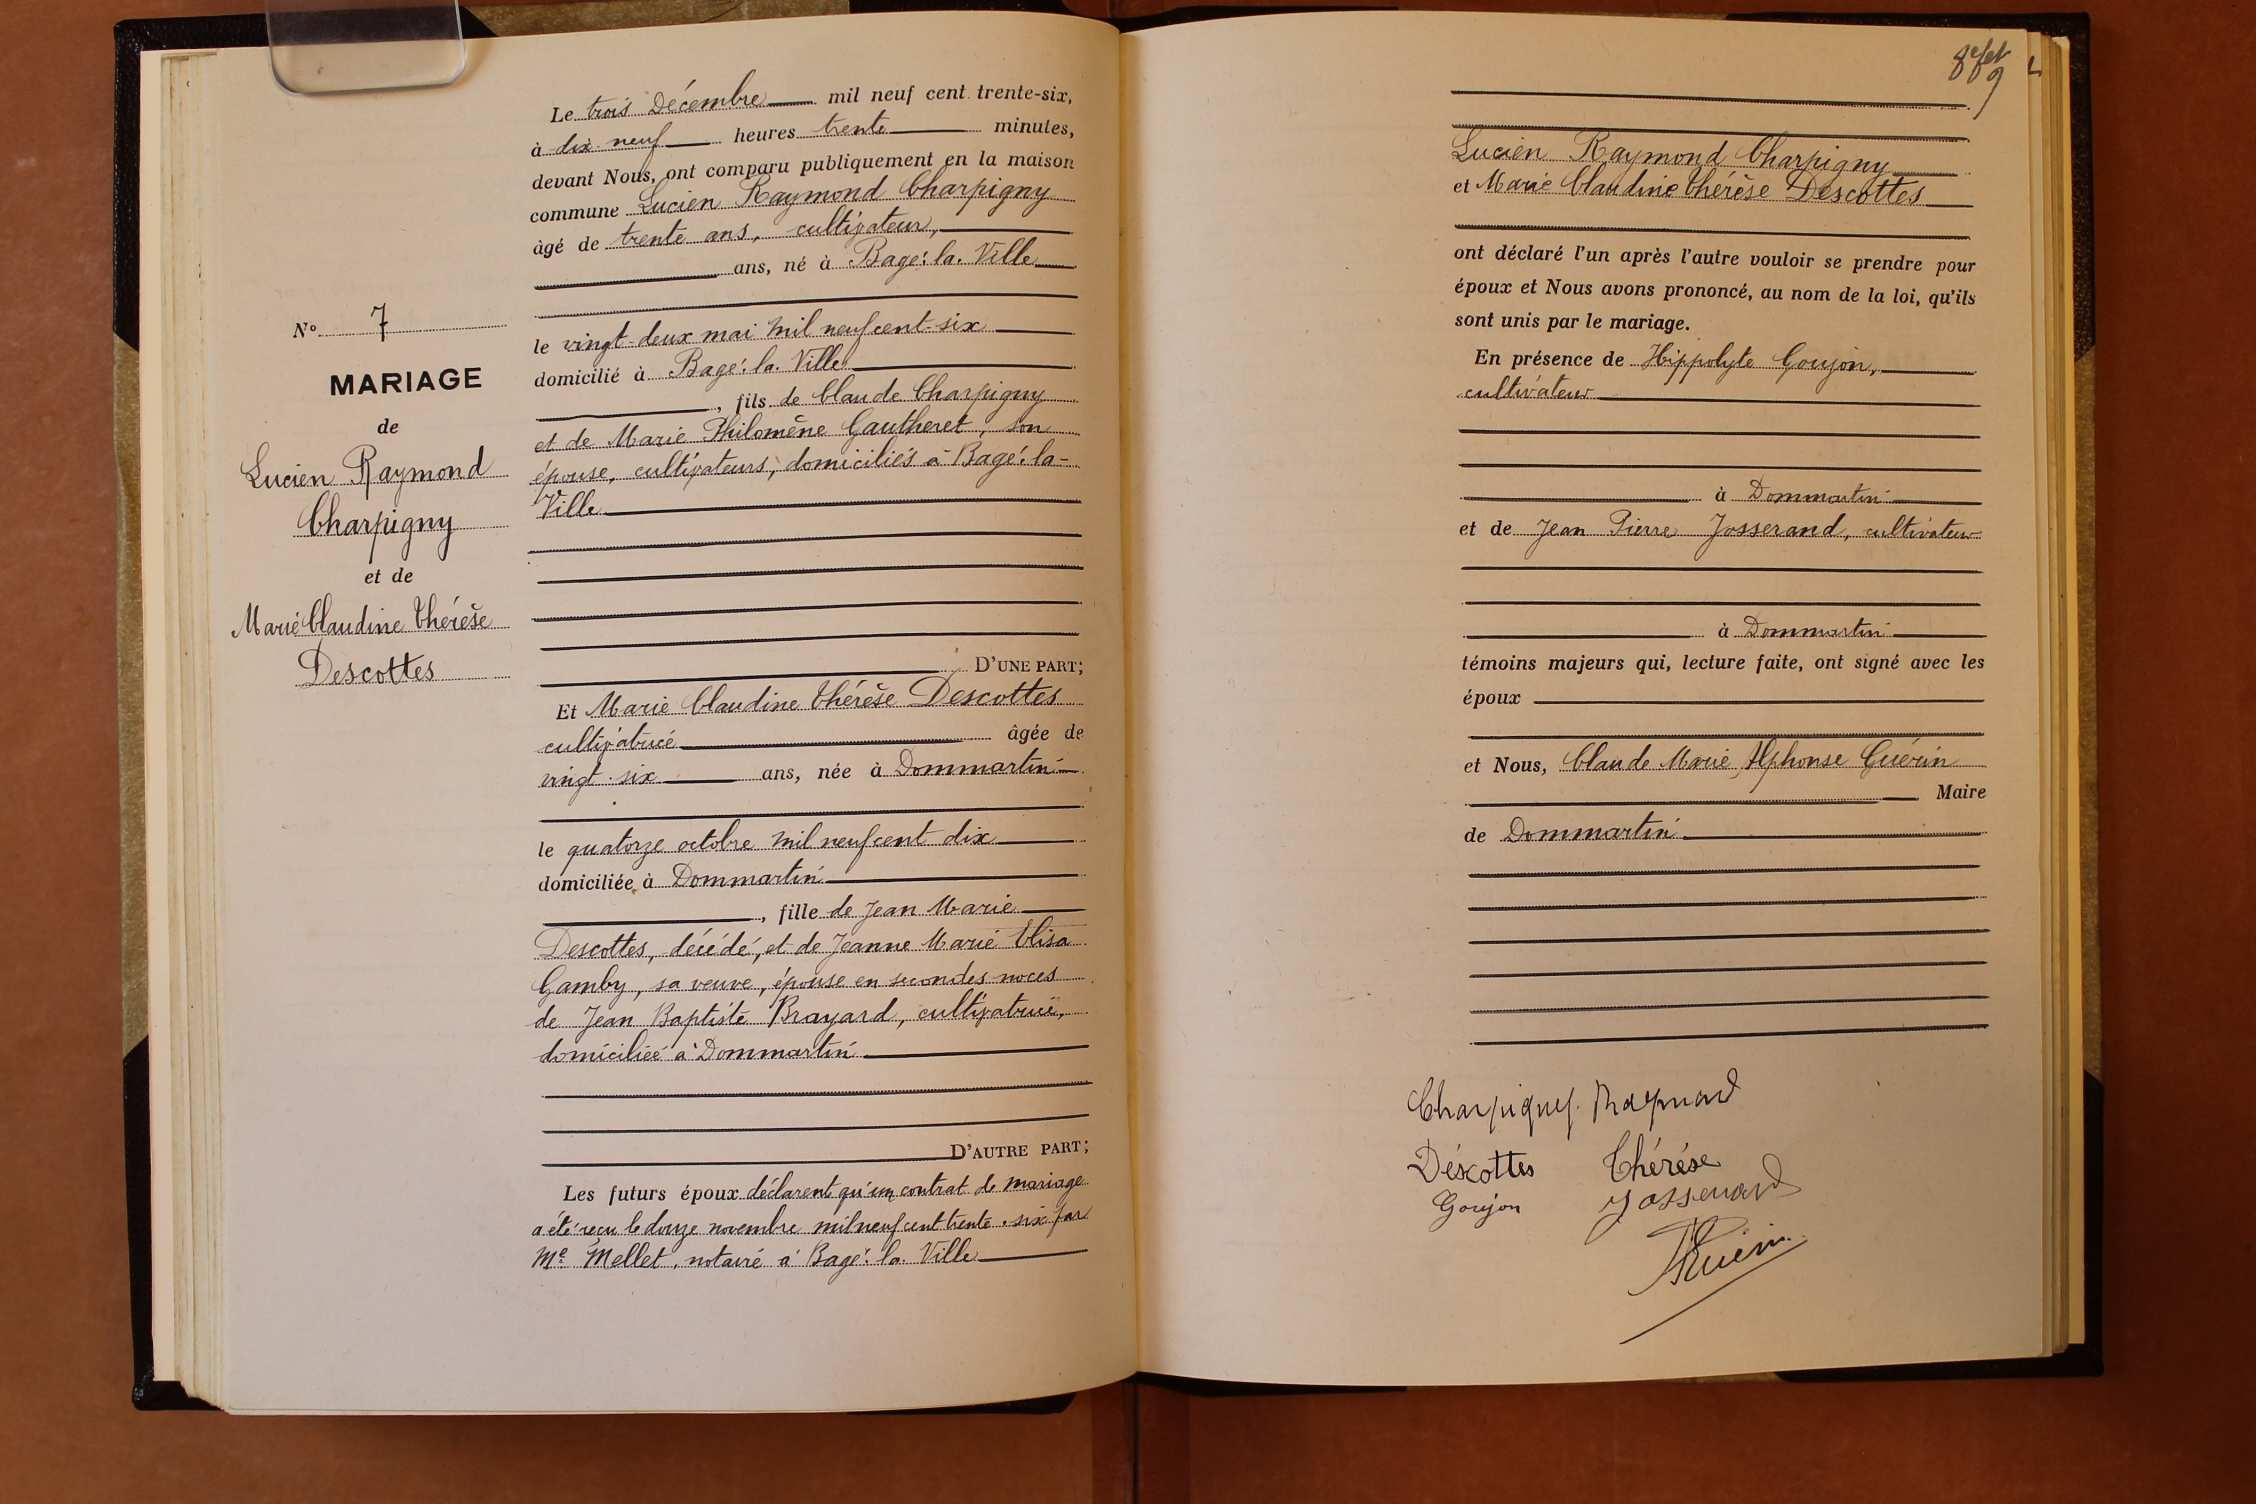 Le trois Décembre mil neuf cent trente-six,
à dix-neuf heures trente minutes,
devant Nous, ont comparu publiquement en la maison
commune Lucien Raymond Charpigny
âgé de trente ans, cultivateur,
ans, né à Bagé-la-Ville
le vingt-deux mai mil neuf cent six
domicilié à Bagé-la-Ville
, fils de Claude Charpigny
et de Marie Philomène Gautheret, son
épouse, cultivateurs, domiciliés à Bagé-la-
Ville
D'UNE PART;
Et Marie Claudine Thérèse Descottes
cultivatrice âgée de
vingt-six ans, née à Dommartin
le quatorze octobre mil neuf cent dix
domiciliée à Dommartin
, fille de Jean Marie
Descottes, décédé, et de Jeanne Marie Elisa
Gamby, sa veuve, épouse en secondes noces
de Jean Baptiste Brayard, cultivatrice,
domiciliée à Dommartin
D'AUTRE PART;
Les futurs époux déclarent qu'un contrat de mariage
a été reçu le douze novembre mil neuf cent trente-six par
Me Mellet, notaire à Bagé-la-Ville
No 7
MARIAGE
de
Lucien Raymond
Charpigny
et de
Marie Claudine Thérèse
Descottes
Lucien Raymond Charpigny
et Marie Claudine Thérèse Descottes
ont déclaré l'un après l'autre vouloir se prendre pour
époux et Nous avons prononcé, au nom de la loi, qu'ils
sont unis par le mariage.
En présence de Hippolyte Goujon,
cultivateur
à Dommartin
et de Jean Pierre Josserand, cultivateur
à Dommartin
témoins majeurs qui, lecture faite, ont signé avec les
époux
et Nous, Claude Marie Alphonse Guérin
Maire
de Dommartin
Charpigny Raymond
Déscottes Thérése
Goujon Josserand
AGuérin